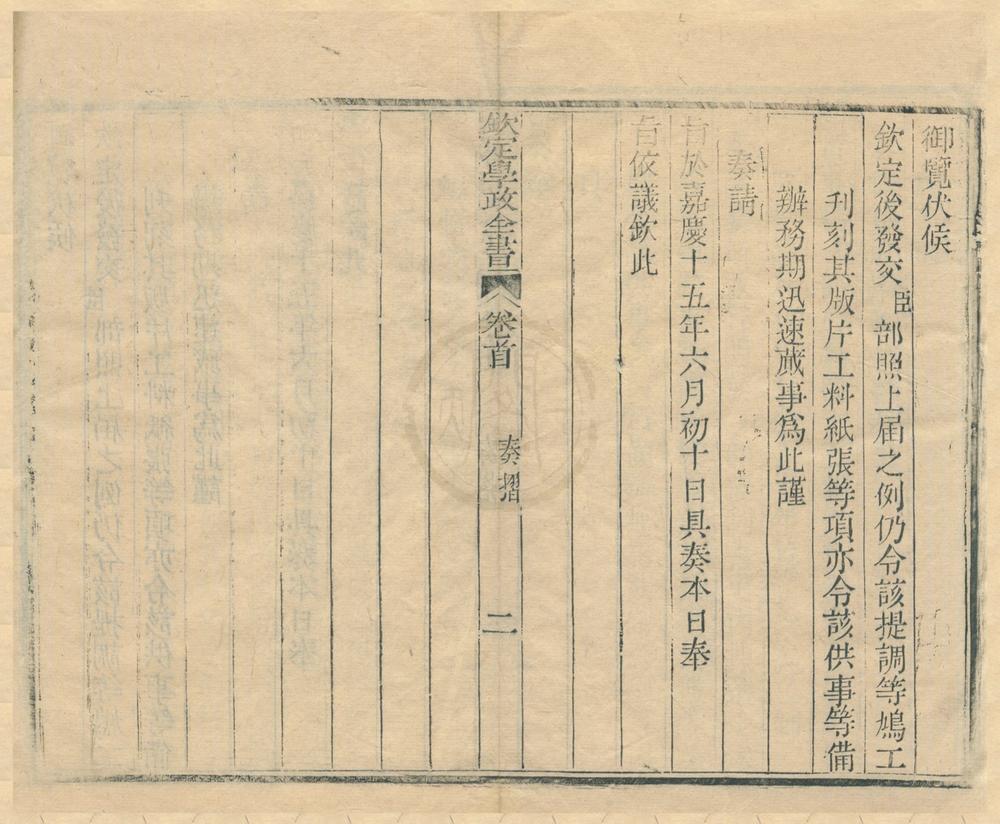 御覽伏候
欽定後發交臣部照上届之例仍令該提調等鳩工
刋刻其版片工料紙張等項亦令該供事等備
辦務期迅速蕆事爲此謹
奏請
旨於嘉慶十五年六月初十日具奏本日奉
旨依議欽此
欽定學政全書 卷首 奏摺 二